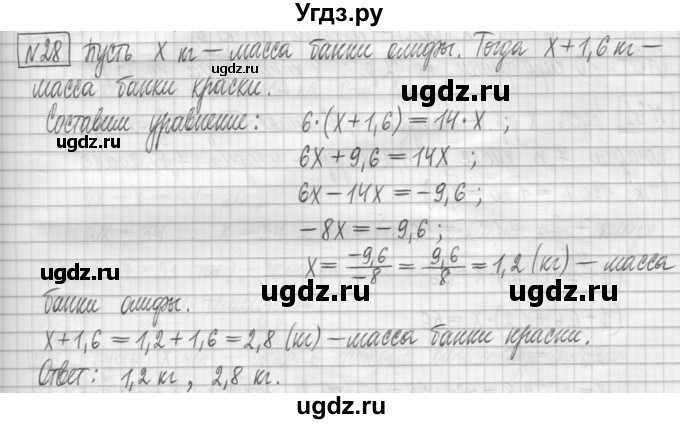 Угдз.ру
№28 Пусть x кг – масса банки олифы. Тогда x+1,6 кг –
масса банки краски.
ugdz.ru
ugdz.ru
Составим уравнение: 6·(x+1,6) = 14·x ;
ugdz.ru
6x + 9,6 = 14x ;
ugdz.ru
6x – 14x = –9,6 ;
ugdz.ru
–8x = –9,6 ;
x = –9,6/–8 = 9,6/8 = 1,2 (кг) – масса
ugdz.ru
ugdz.ru
ugdz.ru
банки олифы.
x+1,6 = 1,2+1,6 = 2,8 (кг) – масса банки краски.
ugdz.ru
Ответ: 1,2 кг , 2,8 кг.
ugdz.ru
ugdz.ru